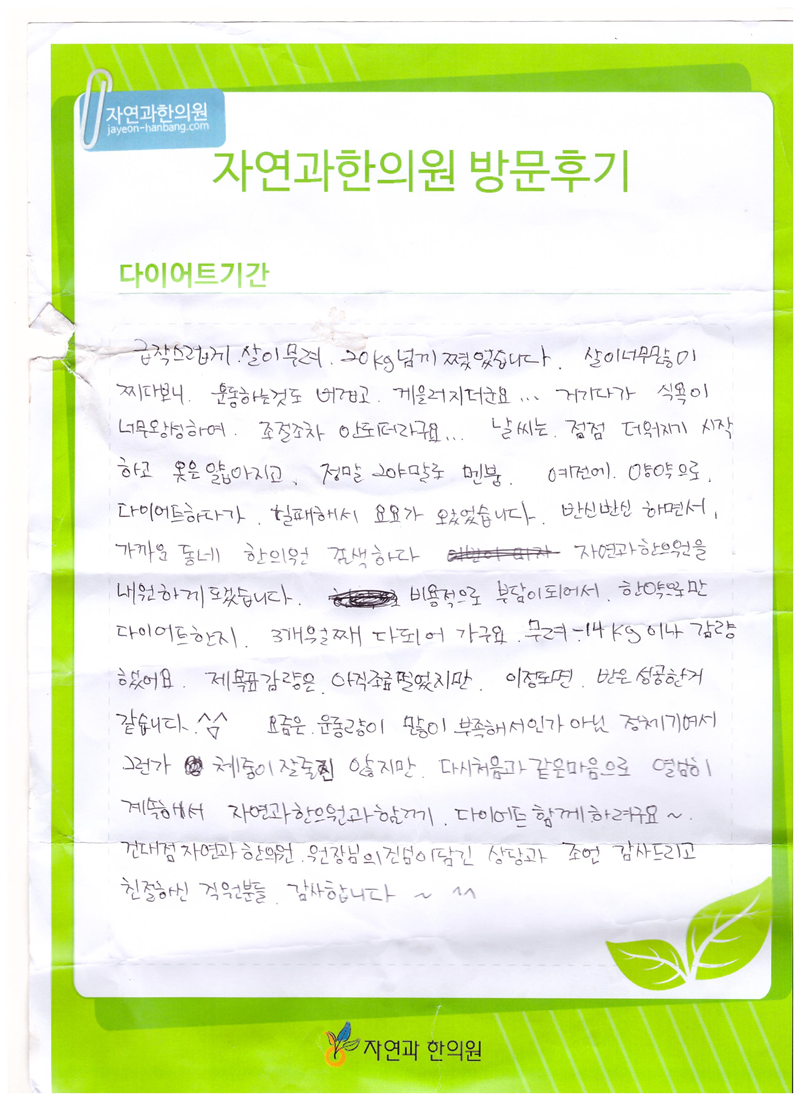 자연과한의원
jayeon-hanbang.com
자연과한의원 방문후기
다이어트기간
급작스럽게. 살이 무려. 20kg 넘게 쪘었습니다. 살이너무많이
찌다보니. 운동하는것도 버겁고. 게을러지더군요... 거기다가 식욕이
너무왕성하여. 조절조차 안되더라구요... 날씨는. 점점 더워지기 시작
하고 옷은 얇아지고, 정말 그야말로 멘붕. 예전에. 양약으로,
다이어트하다가. 실패해서 요요가 왔었습니다. 반신반신 하면서,
가까운 동네 한의원 검색하다 자연과한의원을
내원하게되었습니다. 비용적으로 부담이되어서. 한약만
다이어트한지. 3개월째 다되어 가구요. 무려 -14kg 이나 감량
했어요. 제목표감량은. 아직조금멀었지만. 이정도면. 반은성공한거
같습니다. ^^ 요즘은. 운동량이 많이 부족해서인가 아님 정체기여서
그런가 체중이잘줄진 않지만. 다시처음과같은마음으로 열심히
계속해서 자연과한의원과함께. 다이어트 함께하려구요~.
건대점자연과한의원. 원장님의진심이담긴 상담과 조언 감사드리고
친절하신 직원분들. 감사합니다 ~ ^^
자연과 한의원